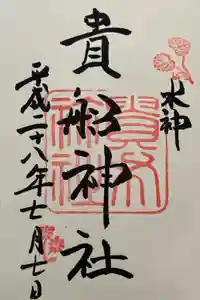 水神
貴船神社
平成二十八年七月七日
貴船神社